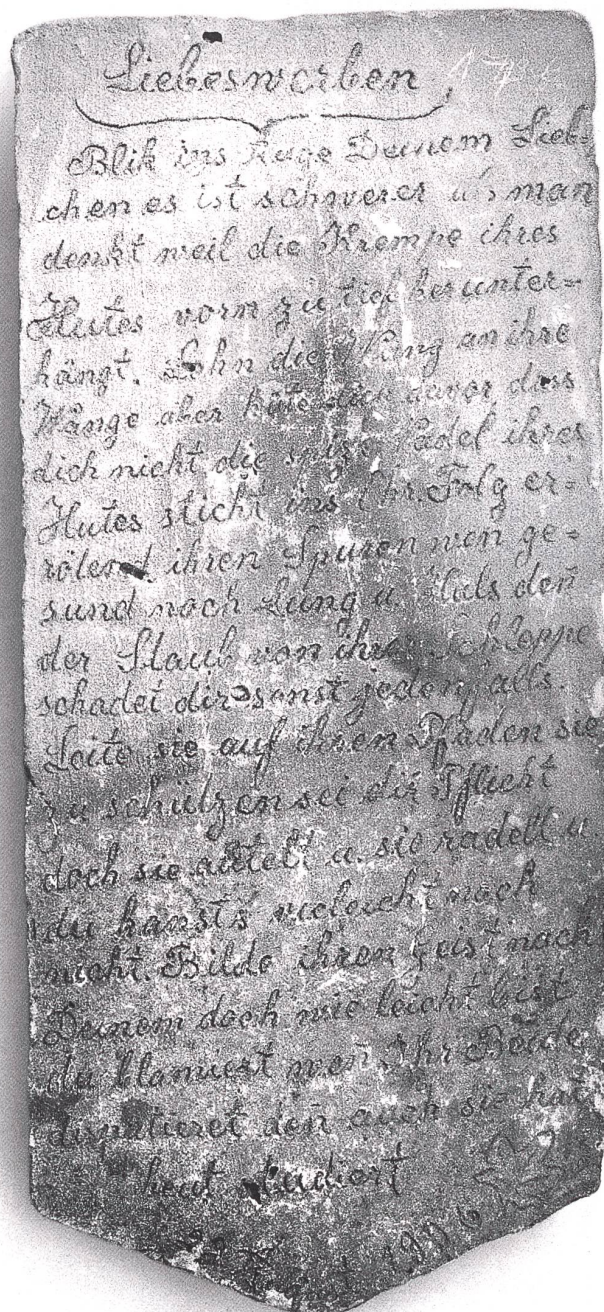 Liebeswerben
Blik ins Auge Deinem Lieb-
chen es ist schwerer als man
denkt weil die Krempe ihres
Hutes vorn zu tief herunter=
hängt. Lehn die Wang an ihre
Wange aber hüte dich davor dass
dich nicht die spize Nadel ihres
Hutes sticht ins Ohr. Folg er=
rötend ihren Spuren wen ge=
sund noch Lung u. Hals den̄
der Staub von ihrer Schleppe
schadet dir sonst jedenfalls.
Leite sie auf ihren Pfaden sie
zu schützen sei dir Pflicht
doch sie autelt u. sie radelt u.
du kanst's vieleicht noch
nicht. Bilde ihren Geist nach
Deinem doch wie leicht bist
du blamiert wen̄ Ihr Beide
disputieret den̄ auch sie hat
heut studiert